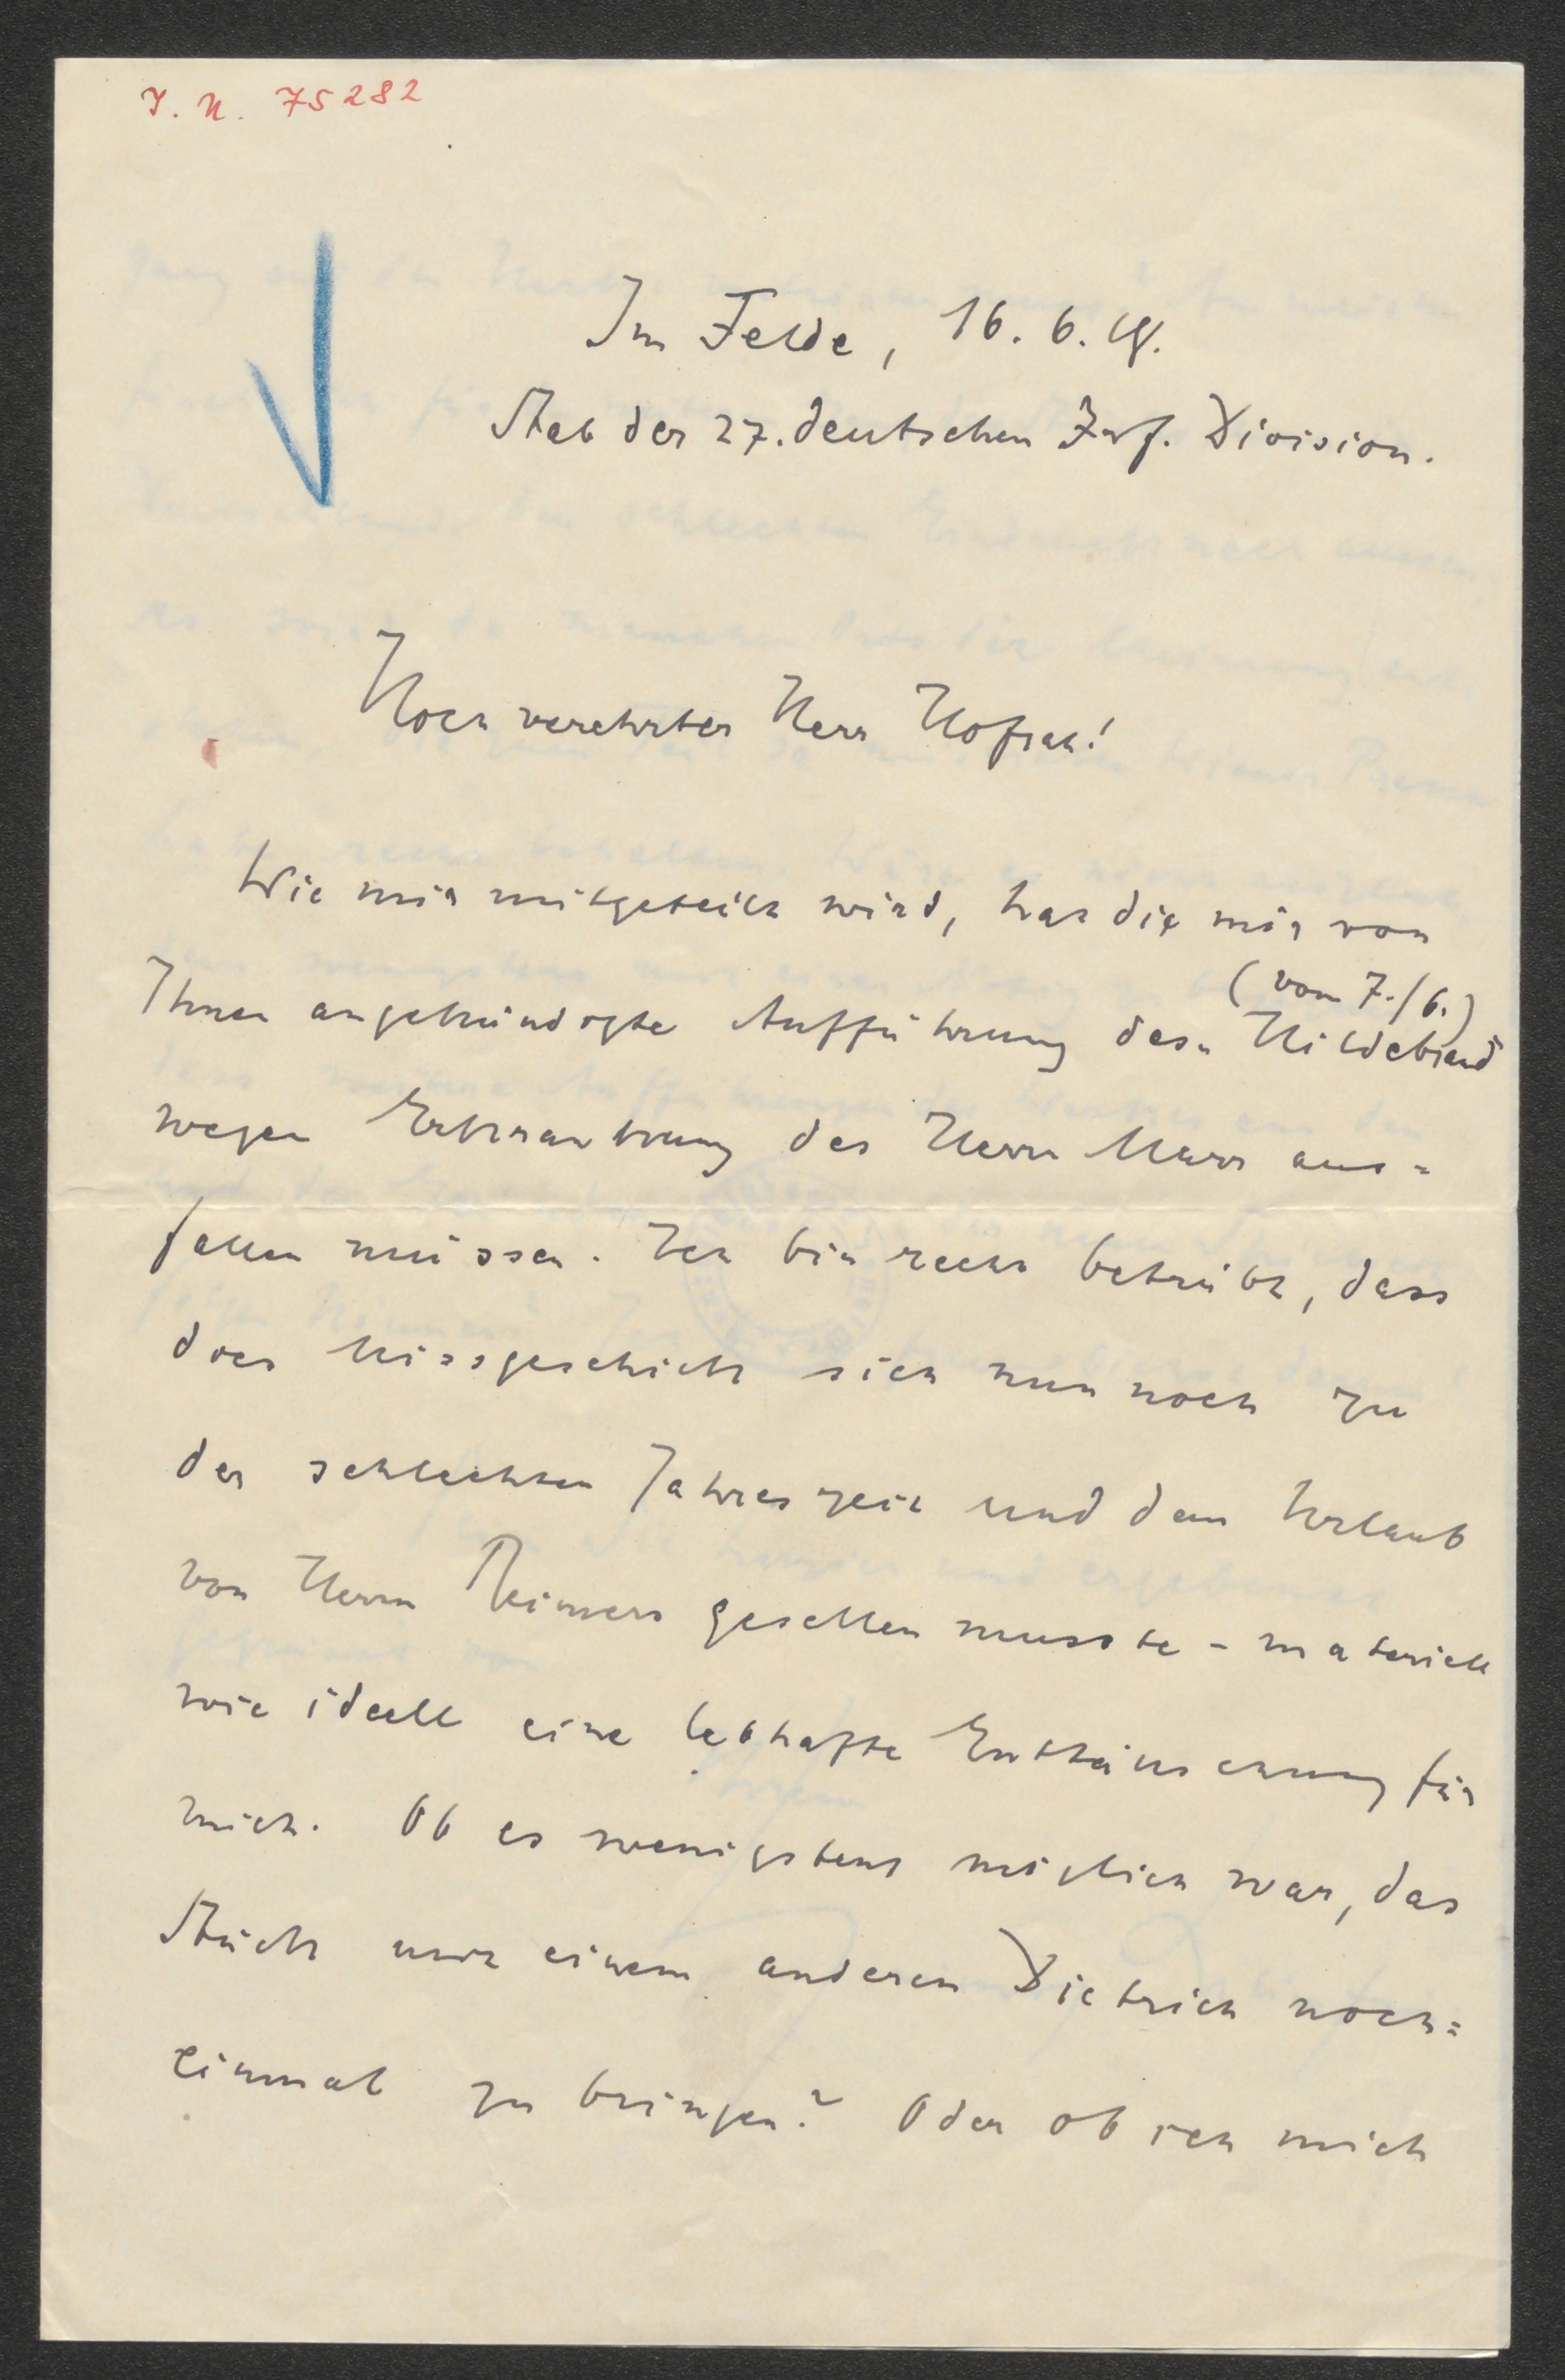 J. N. 75282
Im Felde, 16. 6. 18.
Stab der 27. deutschen Inf. Division.
Hoch verehrter Herr Hofrat!
Wie mir mitgeteilt wird, hat die mir von
(vom 7./6.)
Ihnen angekündigte Aufführung des Hildebrand
wegen Erkrankung des Herrn Marr aus=
fallen müssen. Ich bin recht betrübt, dass
dies Missgeschick sich nun noch zu
der schlechten Jahreszeit und dem Urlaub
von Herrn Reimers gesellen musste - materiell
wie ideell eine lebhafte Enttäuschung für
mich. Ob es wenigstens möglich war, das
Stück mit einem anderen Dietrich noch=
einmal zu bringen? Oder ob ich mich